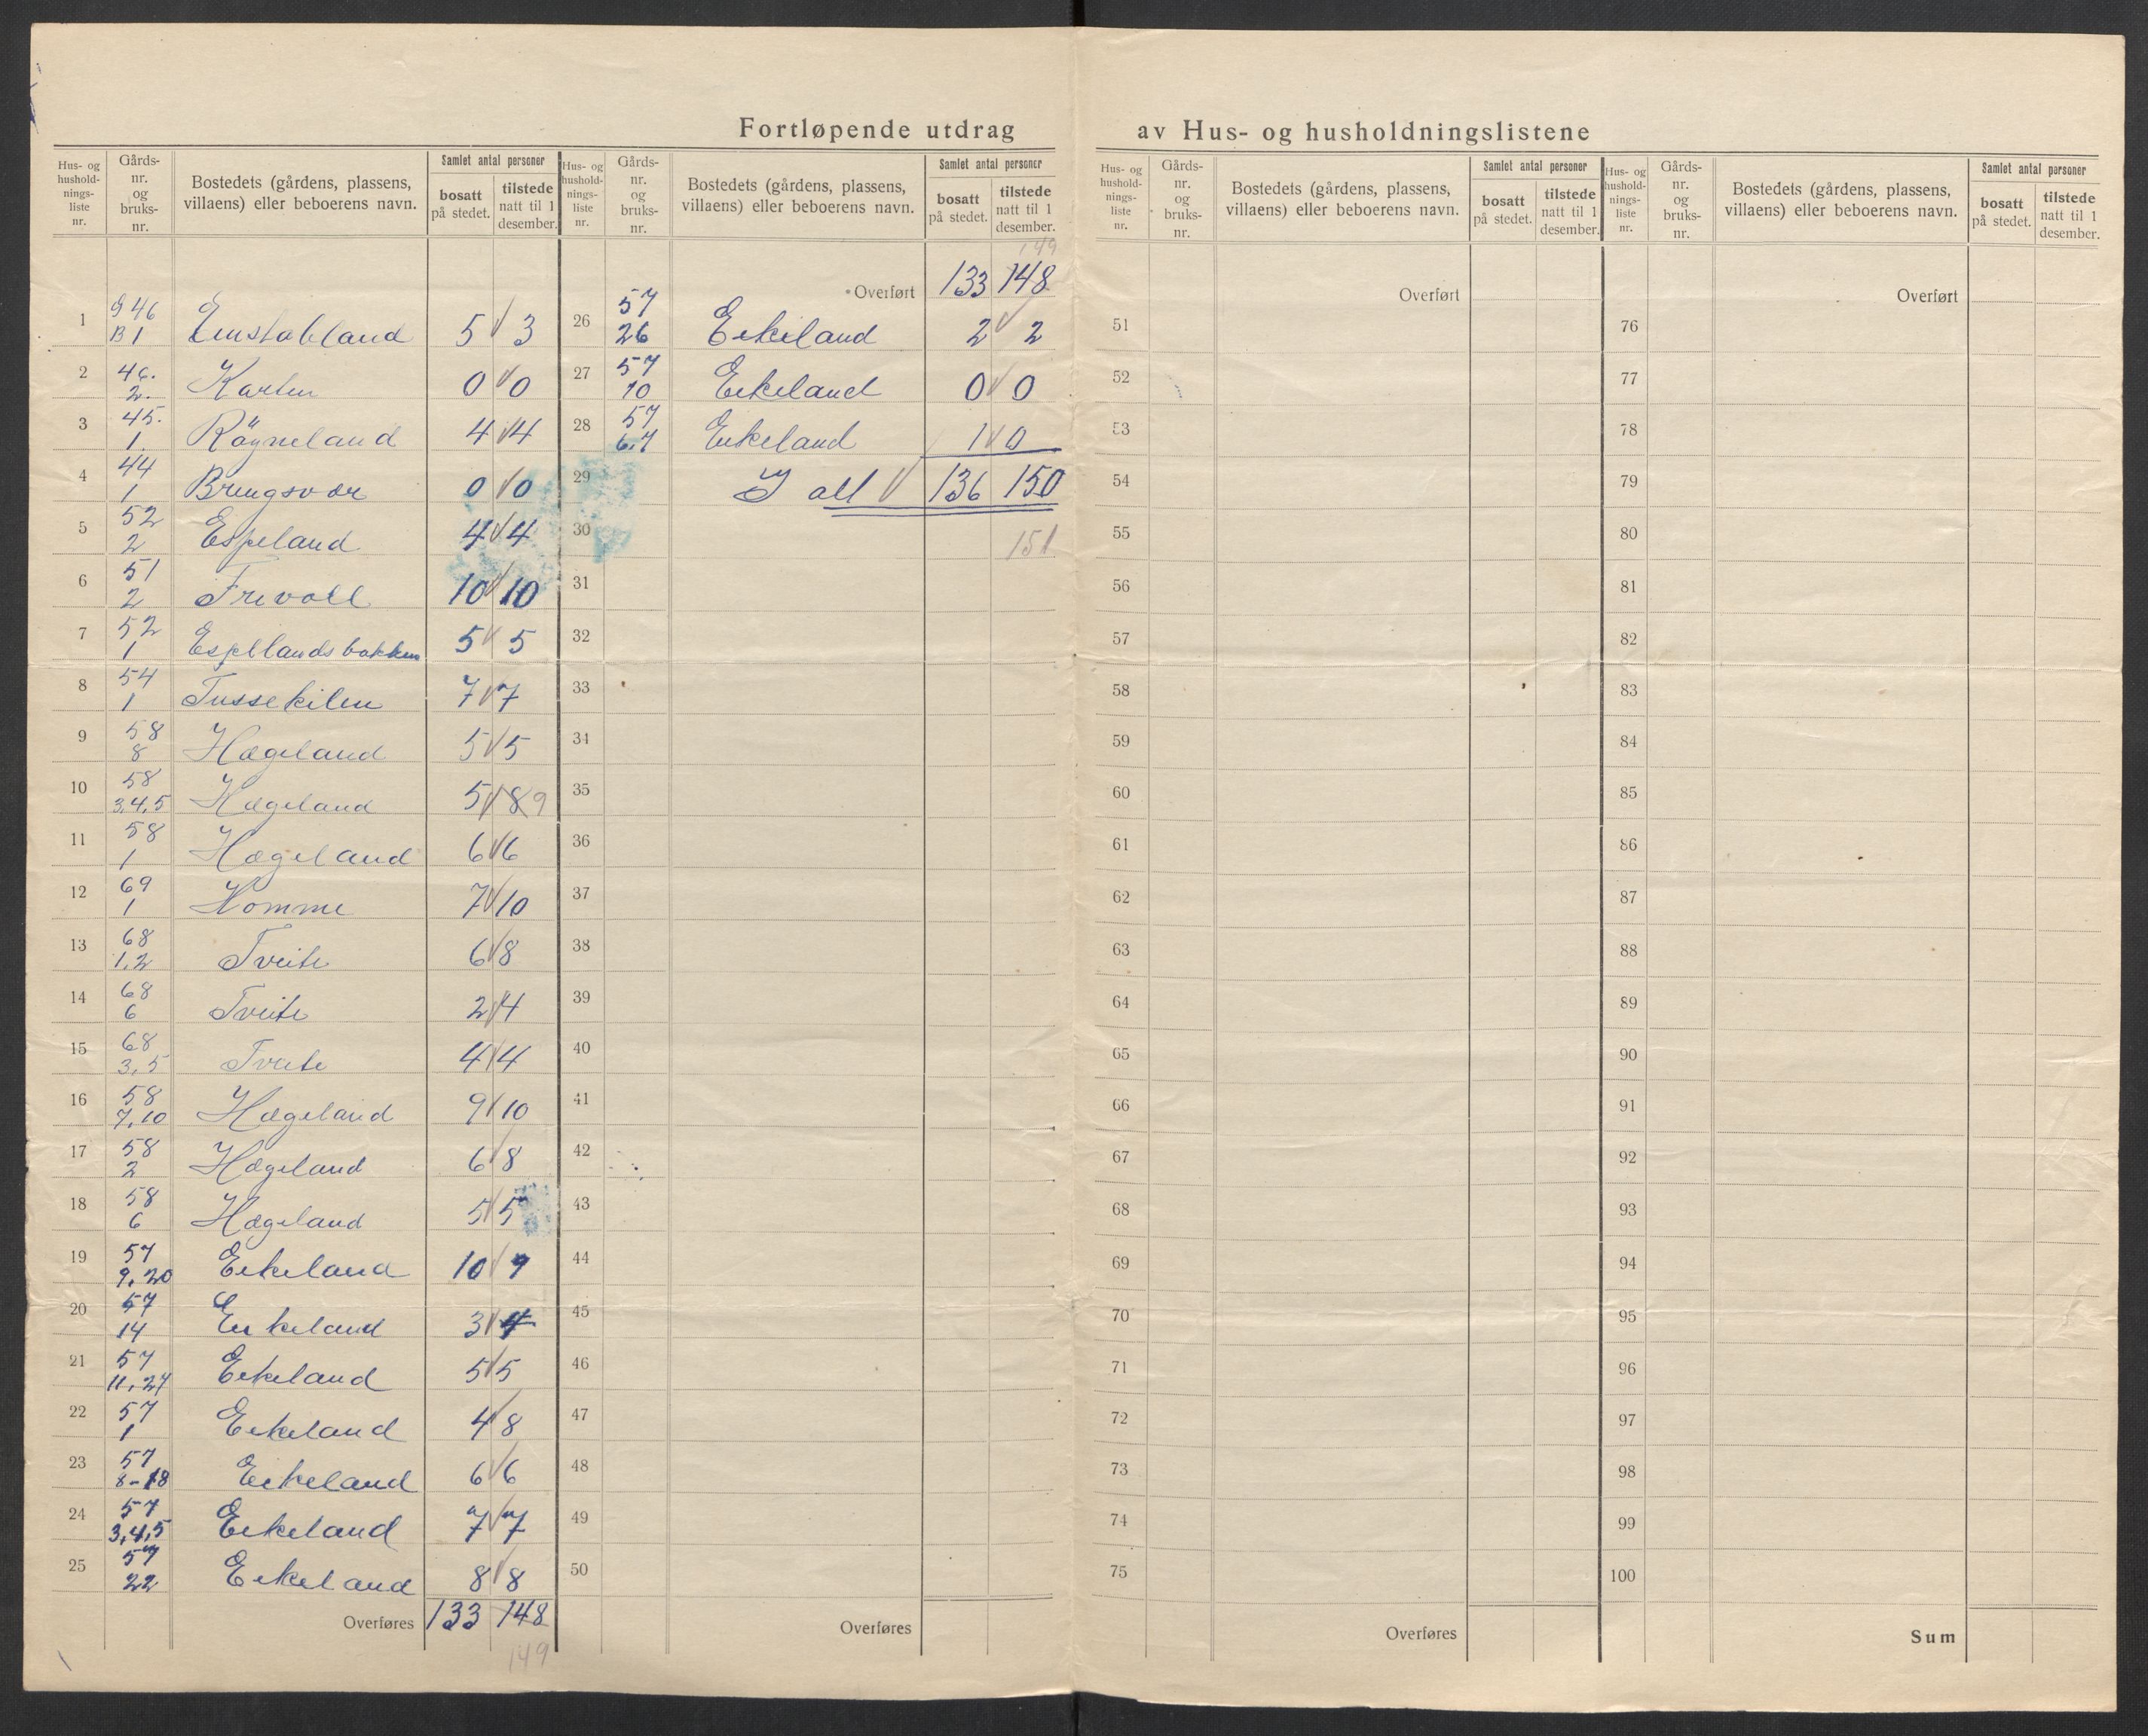 Fortløpende utdrag av Hus- og husholdningslistene
Hus- og hushold-nings-liste nr. | Gårds-nr. og bruks-nr. | Bostedets (gårdens, plassens, villaens) eller beboerens navn. | Samlet antal personer | bosatt på stedet. | tilstede natt til 1 desember.
1 | G 46 B 1 | | 5 | 3
2 | 46. 2. | | 0 | 0
3 | 45. 1. | Røyneland | 4 | 4
4 | 44 1 | Bringsvær | 0 | 0
5 | 52 2 | Espeland | 4 | 4
6 | 51 2 | Trivoll | 10 | 10
7 | 52 1 | Espelandsbakken | 5 | 5
8 | 54 1 | Tussekilen | 7 | 7
9 | 58 8 | Hægeland | 5 | 5
10 | 58 3,4,5 | Hægeland | 5 | 8 9
11 | 58 1 | Hægeland | 6 | 6
12 | 69 1 | Homme | 7 | 10
13 | 68 1,2 | Tveite | 6 | 8
14 | 68 6 | Tveite | 2 | 4
15 | 68 3,5 | Tveite | 4 | 4
16 | 58 7,10 | Hægeland | 9 | 10
17 | 58 2 | Hægeland | 6 | 8
18 | 58 6 | Hægeland | 5 | 5
19 | 57 9,20 | Eikeland | 10 | 9
20 | 57 14 | Eikeland | 3 | 4
21 | 57 11,27 | Eikeland | 5 | 5
22 | 57 1 | Eikeland | 4 | 8
23 | 57 8-18 | Eikeland | 6 | 6
24 | 57 3,4,5 | Eikeland | 7 | 7
25 | 57 22 | Eikeland | 8 | 8
Overføres | 133 | 148
149
Hus- og hushold-nings-liste nr. | Gårds-nr. og bruks-nr. | Bostedets (gårdens, plassens, villaens) eller beboerens navn. | Samlet antal personer | bosatt på stedet. | tilstede natt til 1 desember.
149
Overført | 133 | 148
26 | 57 26 | Eikeland | 2 | 2
27 | 57 10 | Eikeland | 0 | 0
28 | 57 6,7 | Eikeland | 1 | 0
29 | I alt | 136 | 150
30 | 151
31
32
33
34
35
36
37
38
39
40
41
42
43
44
45
46
47
48
49
50
Overføres
Hus- og hushold-nings-liste nr. | Gårds-nr. og bruks-nr. | Bostedets (gårdens, plassens, villaens) eller beboerens navn. | Samlet antal personer | bosatt på stedet. | tilstede natt til 1 desember.
Overført
51
52
53
54
55
56
57
58
59
60
61
62
63
64
65
66
67
68
69
70
71
72
73
74
75
Overføres
Hus- og hushold-nings-liste nr. | Gårds-nr. og bruks-nr. | Bostedets (gårdens, plassens, villaens) eller beboerens navn. | Samlet antal personer | bosatt på stedet. | tilstede natt til 1 desember.
Overført
76
77
78
79
80
81
82
83
84
85
86
87
88
89
90
91
92
93
94
95
96
97
98
99
100
Sum